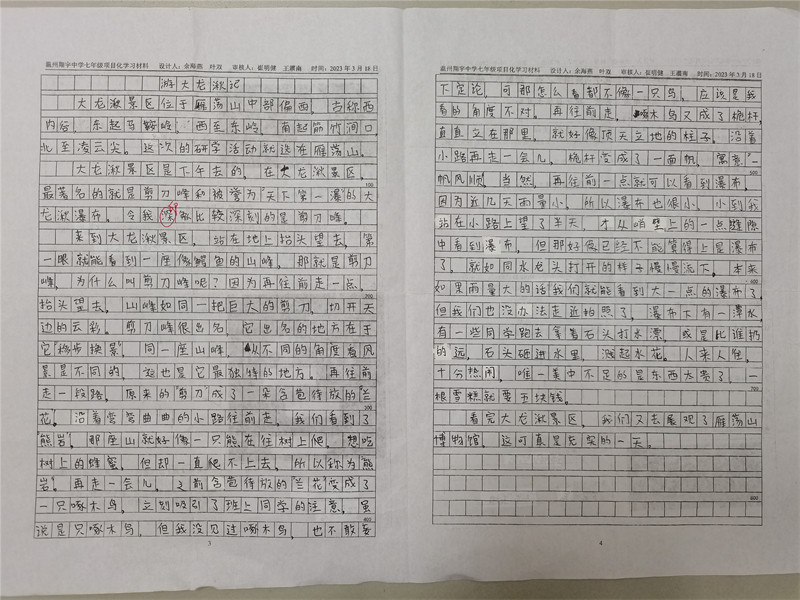 温州翔宇中学七年级项目化学习材料 设计人：余海燕 叶双 审核人：崔明健 王灌南 时间：2023年3月18日
游大龙湫记
大龙湫景区位于雁荡山中部偏西，古称西
内谷，东起马鞍岭，西至东岭，南起筋竹涧口，
北至凌云尖。这次的研学活动就选在雁荡山。
大龙湫景区是下午去的，在大龙湫景区，
100
最著名的就是剪刀峰和被誉为“天下第一瀑”的大
龙湫瀑布，令我深像比较深刻的是剪刀峰。
来到大龙湫景区，站在地上抬头望去，第
一眼就能看到一座像鳄鱼的山峰。那就是剪刀
峰，为什么叫剪刀峰呢？因为再往前走一点，
200
抬头望去，山峰如同一把巨大的剪刀，切开天
边的云彩。剪刀峰很出名，它出名的地方在于
它“移步换景”，同一座山峰，从不同的角度看风
景是不同的，这也是它最独特的地方。再往前
走一段路，原来的“剪刀”成了一朵含苞待放的“兰
300
花”。沿着弯弯曲曲的小路往前走，我们看到了
“熊岩”。那座山就好像一只熊在往树上爬，想吃
树上的蜂蜜，但却一直爬不上去。所以称为“熊
岩”。再走一会儿，之前含苞待放的兰花变成了
一只啄木鸟，立刻吸引了班上同学的注意，虽
400
说是只啄木鸟，但我没见过啄木鸟，也不敢妄
3
温州翔宇中学七年级项目化学习材料 设计人：余海燕 叶双 审核人：崔明健 王灌南 时间：2023年3月18日
下定论，可那怎么看都不像一只鸟。应该是我
看的角度不对。再往前走，啄木鸟又成了桅杆，
直直立在那里，就好像顶天立地的柱子。沿着
小路再走一会儿，桅杆变成了一面帆，寓意“一
帆风顺”。当然，再往前一点就可以看到瀑布，
因为近几天雨量小，所以瀑布也很小，小到我
站在小路上望了半天，才从峭壁上的一点缝隙
中看到瀑布，但那好像已经不能算得上是瀑布
了，就如同水龙头打开的样子慢慢流下。本来
如果雨量大的话我们就能看到大一点的瀑布了，
但我们也没办法走近拍照了。瀑布下有一潭水，
有一些同学跑去拿着石头打水漂，或是比谁扔
的远，石头砸进水里，溅起水花。人来人往，
十分热闹，唯一美中不足的是东西太贵了，一
700
根雪糕就要五块钱。
看完大龙湫景区，我们又去展观了雁荡山
博物馆，这可真是充实的一天。
800
4